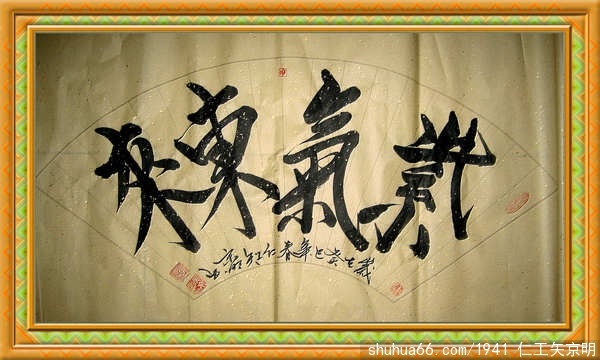 紫氣東来
歲在癸巳年春仁工矢
shuhua66.com/1941 仁工矢京明